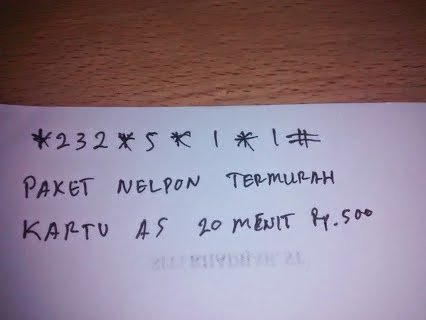 *232*5*1*1#
PAKET NELPON TERMURAH
KARTU AS 20 MENIT Rp.500